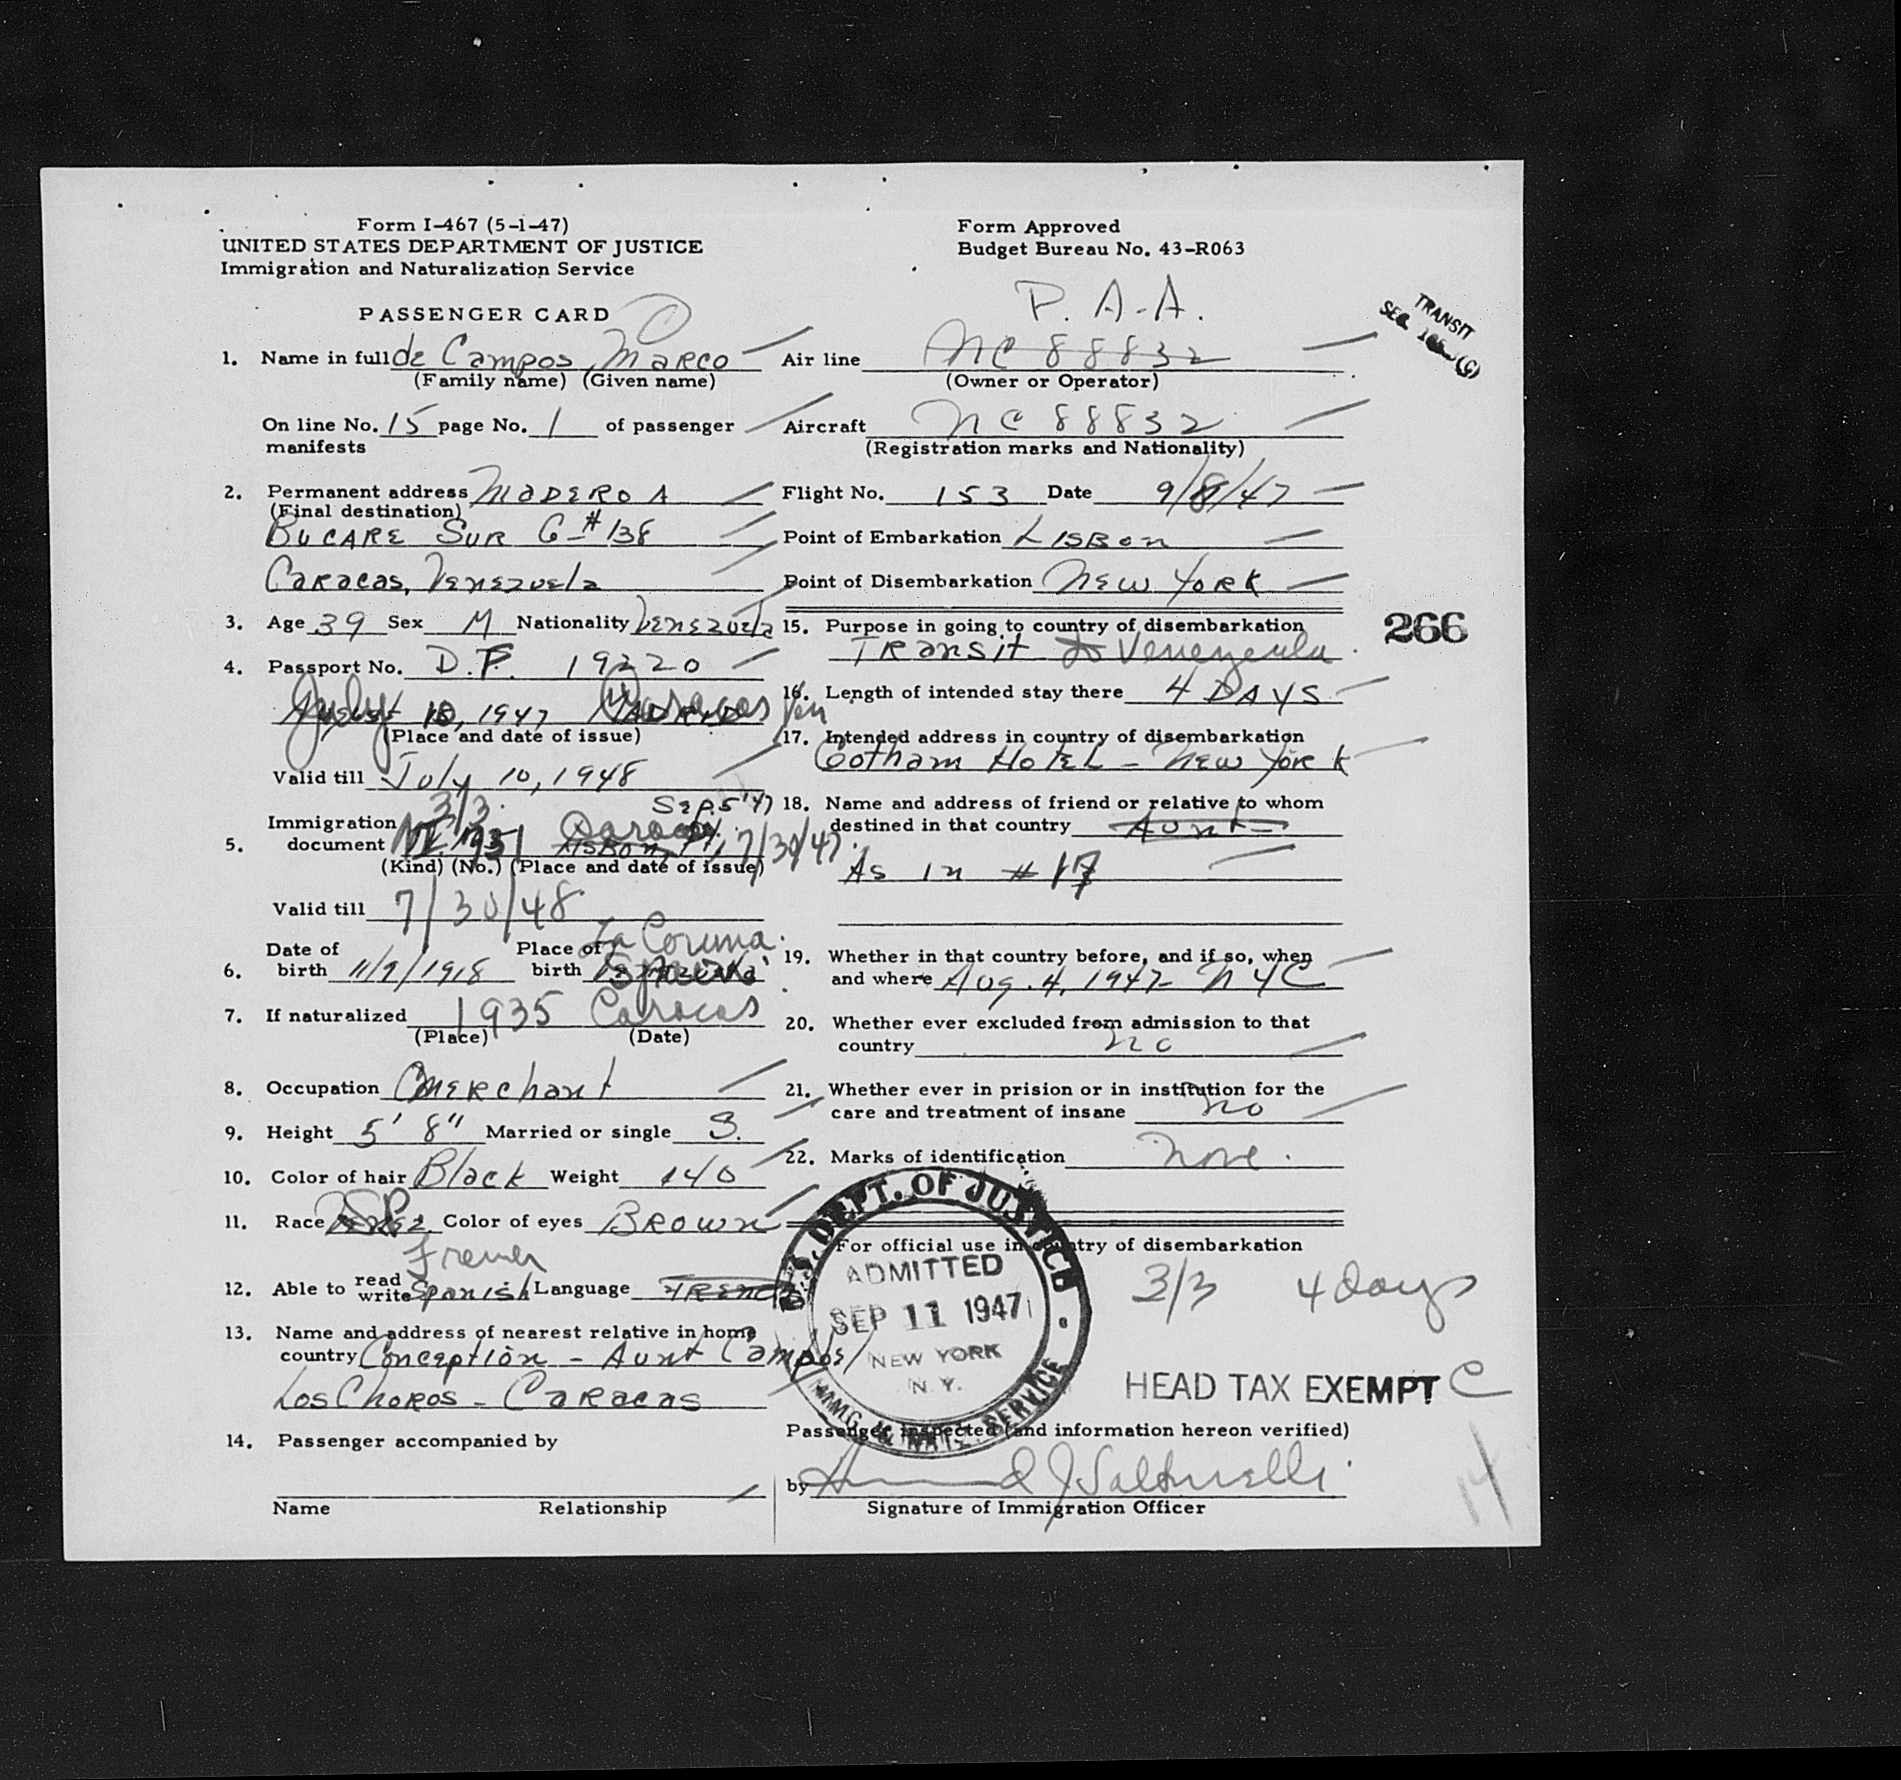 Form I-467 (5-1-47)
UNITED STATES DEPARTMENT OF JUSTICE
Immigration and Naturalization Service
PASSENGER CARD
1. Name in full de Campos, Marco
(Family name) (Given name)
On line No. 15 page No. 1 of passenger
manifests
2. Permanent address MADERO A
(Final destination)
BUCARE SUR 6 - # 138
CARACAS, VENEZUELA
3. Age 39 Sex M Nationality VENEZUELA
4. Passport No. D.P. 19220
July 10, 1947 Caracas Ven
(Place and date of issue)
Valid till July 10, 1948
3/3. Sep. 5 '47
Immigration
5. document 1931 7/30/47
(Kind) (No.) (Place and date of issue)
Valid till 7/30/48
La Coruna.
Date of Place of
6. birth 11/9/1918 birth Spain
7. If naturalized 1935 Caracas
(Place) (Date)
8. Occupation MERCHANT
9. Height 5' 8" Married or single S.
10. Color of hair Black Weight 140
11. Race SP. Color of eyes BROWN
French
12. Able to read write Spanish Language FRENCH
13. Name and address of nearest relative in home
country Conception - Aunt Campos
Los Choros - CARACAS
14. Passenger accompanied by
Name Relationship
Form Approved
Budget Bureau No. 43-R063
P.A.A.
TRANSIT
SEC.
Air line NC 88832
(Owner or Operator)
Aircraft NC 88832
(Registration marks and Nationality)
Flight No. 153 Date 9/8/47
Point of Embarkation LISBON
Point of Disembarkation NEW YORK
266
15. Purpose in going to country of disembarkation
TRANSIT to Venezuela.
16. Length of intended stay there 4 DAYS
17. Intended address in country of disembarkation
Gotham HOTEL - NEW YORK
18. Name and address of friend or relative to whom
destined in that country Aunt
As in # 17
19. Whether in that country before, and if so, when
and where Aug. 4, 1947 - NYC
20. Whether ever excluded from admission to that
country no
21. Whether ever in prision or in institution for the
care and treatment of insane no
22. Marks of identification None.
For official use in country of disembarkation
U.S. DEPT. OF JUSTICE
ADMITTED
SEP 11 1947
NEW YORK
N. Y.
IMMIG. & NATZ. SERVICE
3/3 4 days
HEAD TAX EXEMPT C
Passenger inspected (and information hereon verified)
by
Signature of Immigration Officer
14